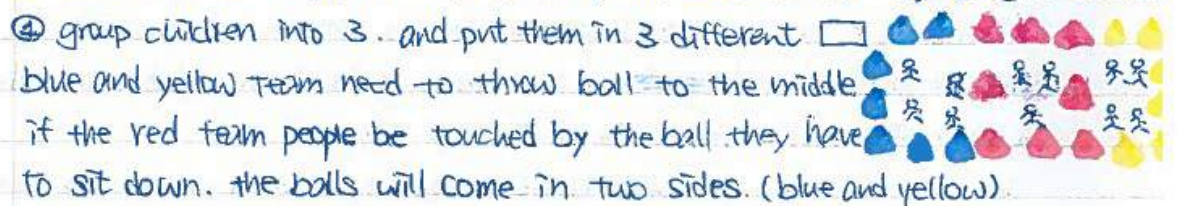 ④ group children into 3. and put them in 3 different
blue and yellow team need to throw ball to the middle
if the red team people be touched by the ball they have
to sit down. the balls will come in two sides. (blue and yellow)